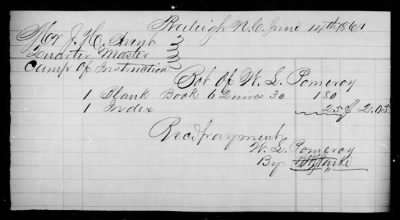 Raleigh N.C. June 14th 1861
Quarter Master
Camp Of Instruction
Bot Of W. L. Pomeroy
1 Blank Book 6 Quires 30 180
1 Index 25 $ 2.05
Recd payment
W. L. Pomeroy
By